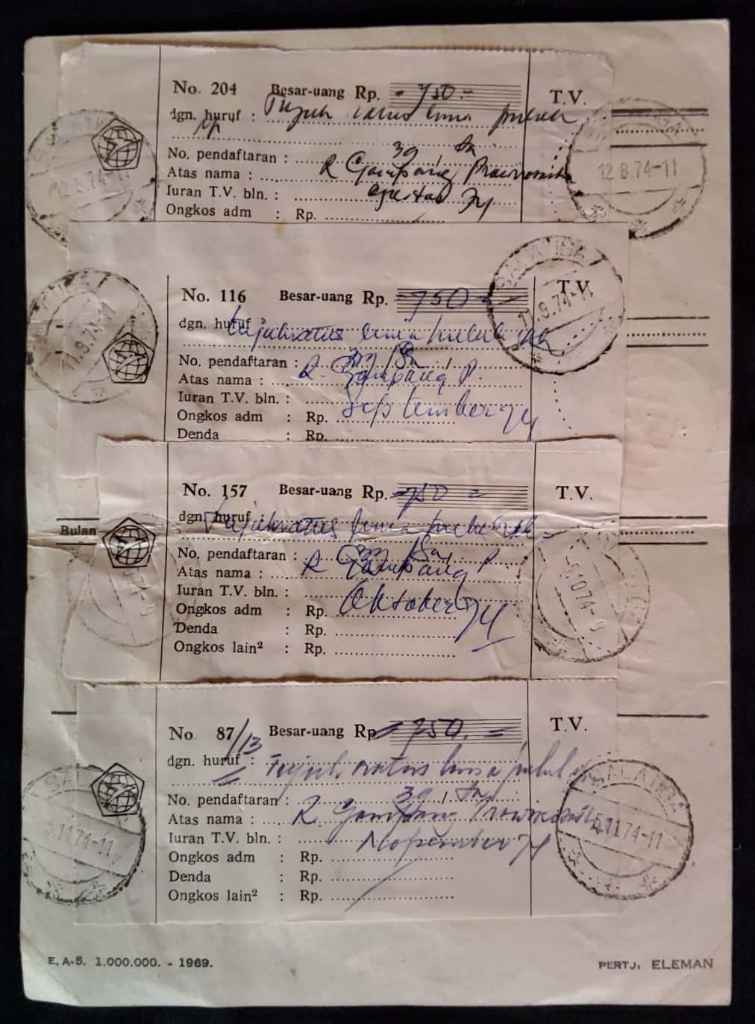 No. 204 Besar-uang Rp. -750.- T.V.
dgn. huruf : Tujuh ratus lima puluh
rp
No. pendaftaran : 39 / Sa
Atas nama : R Gampang Prawiro
Iuran T.V. bln. : Agustus 74
Ongkos adm : Rp.
12 8.74-11
12.8.74-11
No. 116 Besar-uang Rp. -750 - T.V.
dgn. huruf : tujuhratus lima puluh
No. pendaftaran : 39 / Sa
Atas nama : R Gampang P.
Iuran T.V. bln. : September 74
Ongkos adm : Rp.
Denda : Rp.
SALATIGA
11.9.74-11
No. 157 Besar-uang Rp. -750 - T.V.
dgn. huruf : Tujuhratus lima puluh
Bulan
No. pendaftaran : 39 / Sa
Atas nama : R Gampang P.
Iuran T.V. bln. :
Ongkos adm : Rp. Oktober 74
Denda : Rp.
Ongkos lain² : Rp.
10.74-9
No 87/13 Besar-uang Rp -750.- T.V.
dgn. huruf : Tujuh ratus lima puluh
No. pendaftaran : 39 / Sa
Atas nama : R. Gampang
Iuran T.V. bln. : Nopember 74
Ongkos adm : Rp.
Denda : Rp.
Ongkos lain² : Rp.
SALATIGA
11.74-11
5.11.74-11
E, A-5. 1.000.000. - 1969. PERTJ. ELEMAN